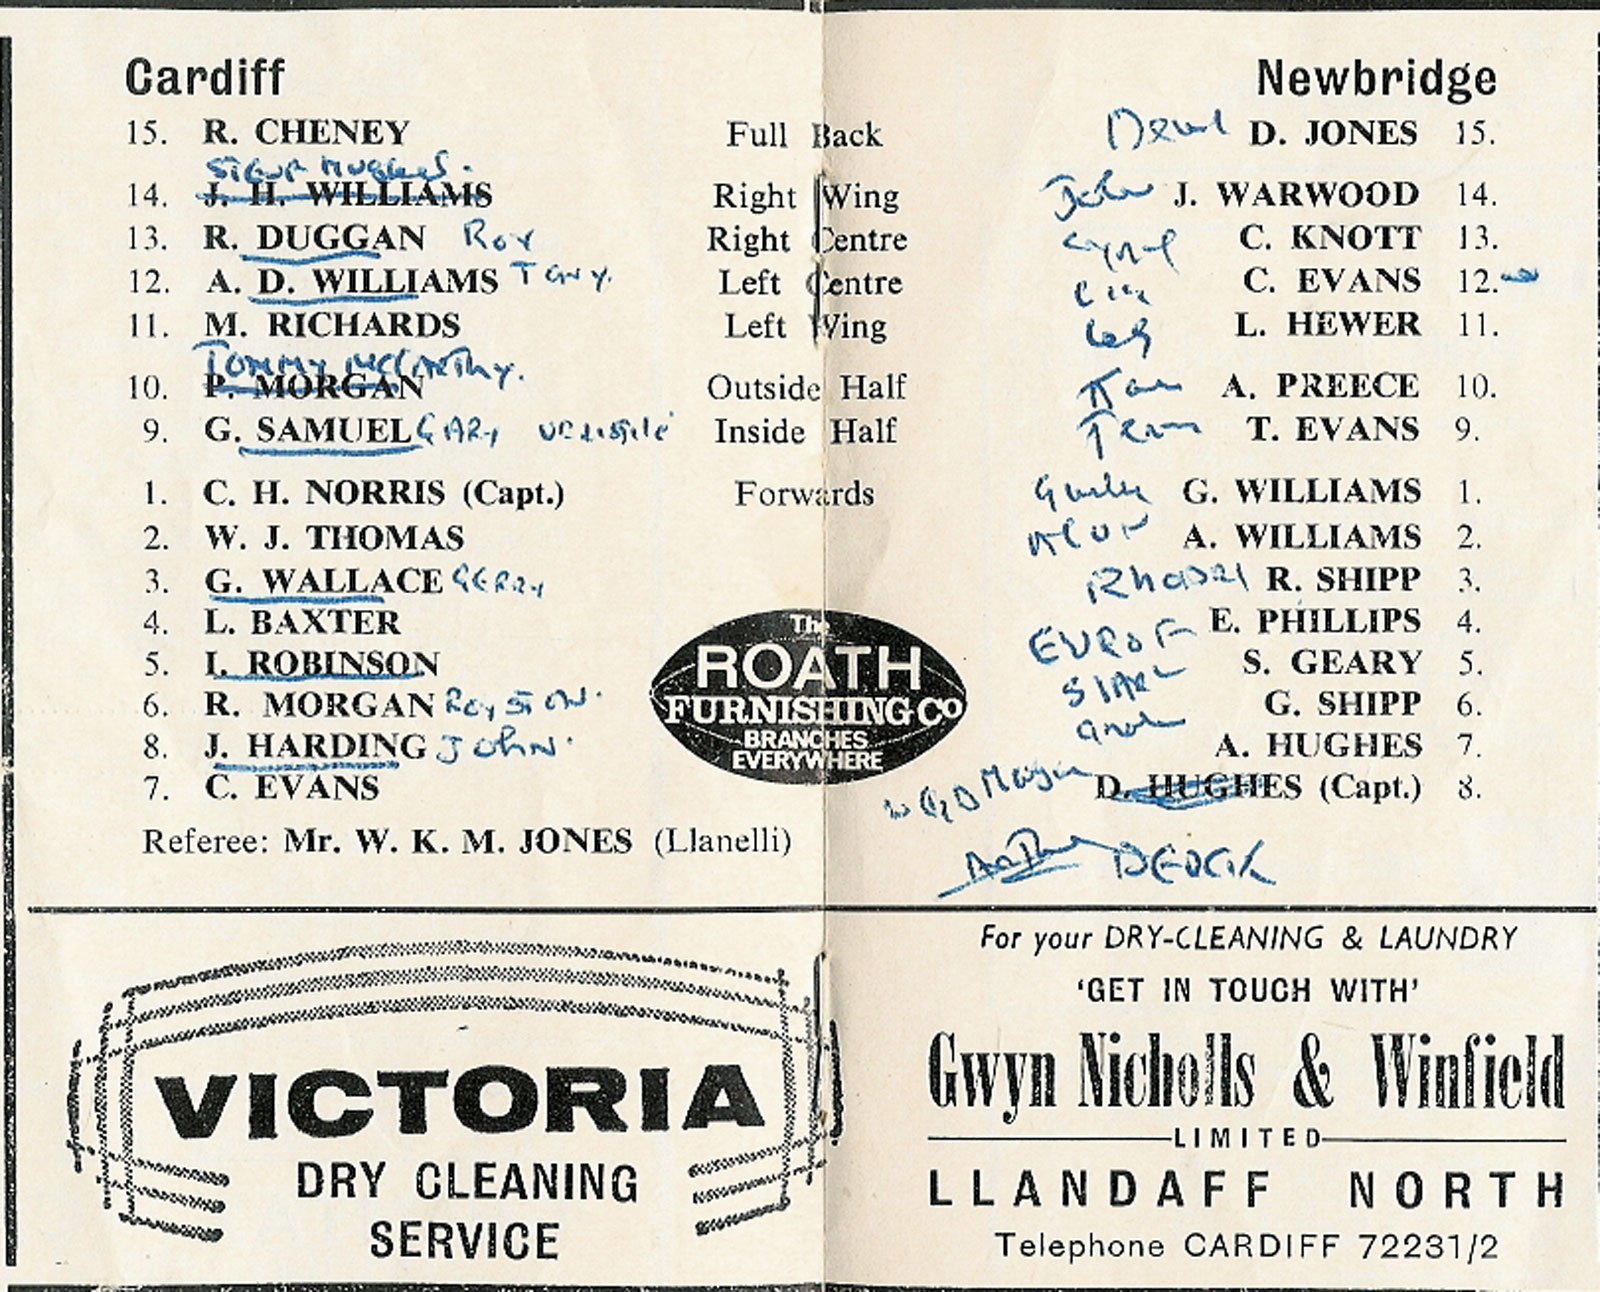 Cardiff Newbridge
15. R. CHENEY Full Back D. JONES 15.
Hughes.
14. J. H. WILLIAMS Right Wing John J. WARWOOD 14.
13. R. DUGGAN Roy Right Centre C. KNOTT 13.
12. A. D. WILLIAMS TONY. Left Centre C. EVANS 12.
11. M. RICHARDS Left Wing L. HEWER 11.
TOMMY McCARTHY.
10. P. MORGAN Outside Half A. PREECE 10.
9. G. SAMUEL GARY Inside Half T. EVANS 9.
1. C. H. NORRIS (Capt.) Forwards G. WILLIAMS 1.
2. W. J. THOMAS ALUN A. WILLIAMS 2.
3. G. WALLACE GERRY R. SHIPP 3.
4. L. BAXTER E. PHILLIPS 4.
5. I. ROBINSON S. GEARY 5.
6. R. MORGAN ROYSTON. G. SHIPP 6.
8. J. HARDING JOHN. A. HUGHES 7.
7. C. EVANS D. HUGHES (Capt.) 8.
Morgan
Referee: Mr. W. K. M. JONES (Llanelli)
Arthur
The
ROATH
FURNISHING CO
BRANCHES
EVERYWHERE
VICTORIA
DRY CLEANING
SERVICE
For your DRY-CLEANING & LAUNDRY
'GET IN TOUCH WITH'
Gwyn Nicholls & Winfield
LIMITED
LLANDAFF NORTH
Telephone CARDIFF 72231/2